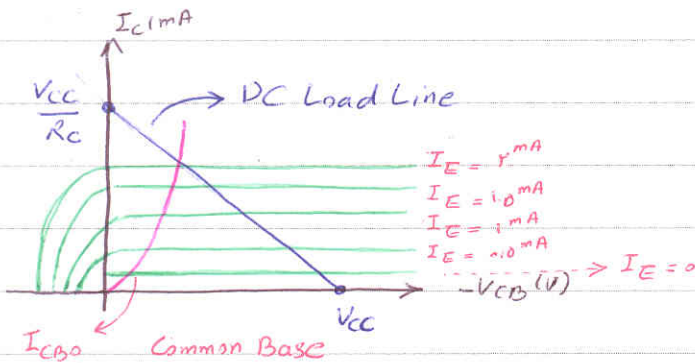 I_C (mA
V_CC/R_C
DC Load Line
I_E = ۲ mA
I_E = ۱.۵ mA
I_E = ۱ mA
I_E = ۰.۵ mA
I_E = 0
-V_CB (V)
V_CC
I_CBO
Common Base